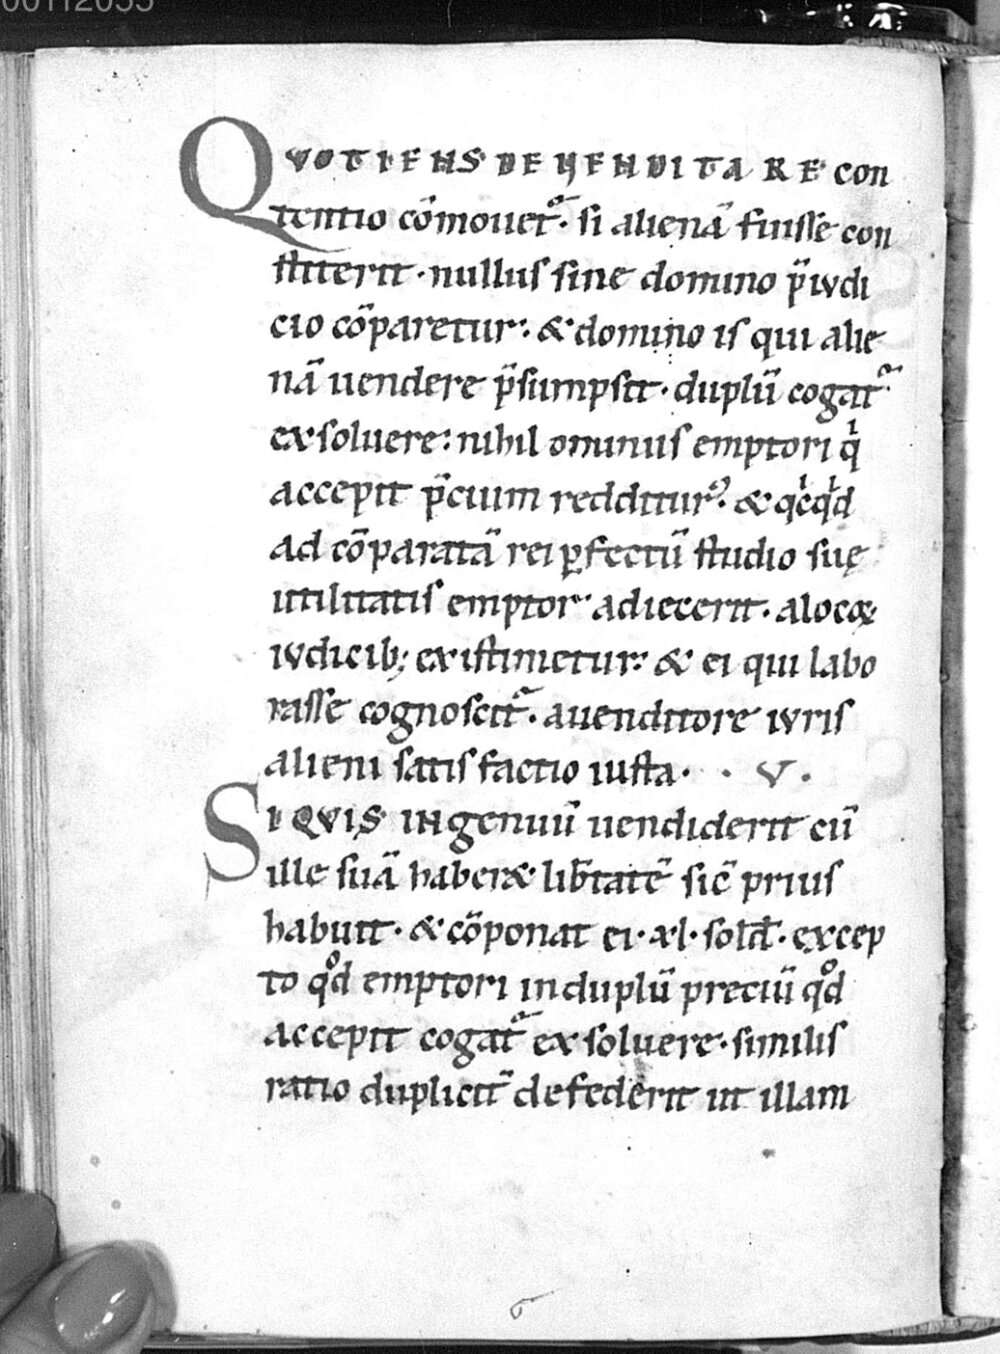 00112055
QVOTIENS DE VENDITA RE con
tentio cōmouet᷑. si alienā fuisse con
stiterit. nullus sine domino p̄iudi
cio cōparetur. & domino is qui alie
nā uendere p̄sumpsit. duplū cogat᷑.
exsoluere. nihil ominus emptori qͥ
accepit p̄cium redditur᷑. & qͥcqͥd
ad cōparatā rei ꝑfectū studio suę
utilitatis emptor adiecerit. alocoꝝ
iudicib; existimetur. & ei qui labo
rasse cognoscit᷑. auenditore iuris
alieni satisfactio iusta. . V .
SI QVIS inGenuū uendiderit cū
ille suā haber& lib̄tatē sic̄ prius
habuit. & cōponat ei. xl. sold̄. excep
to qͦd emptori induplū preciū qͦd
accepit cogat᷑ exsoluere. similis
ratio duplicit̄ defederit ut illam